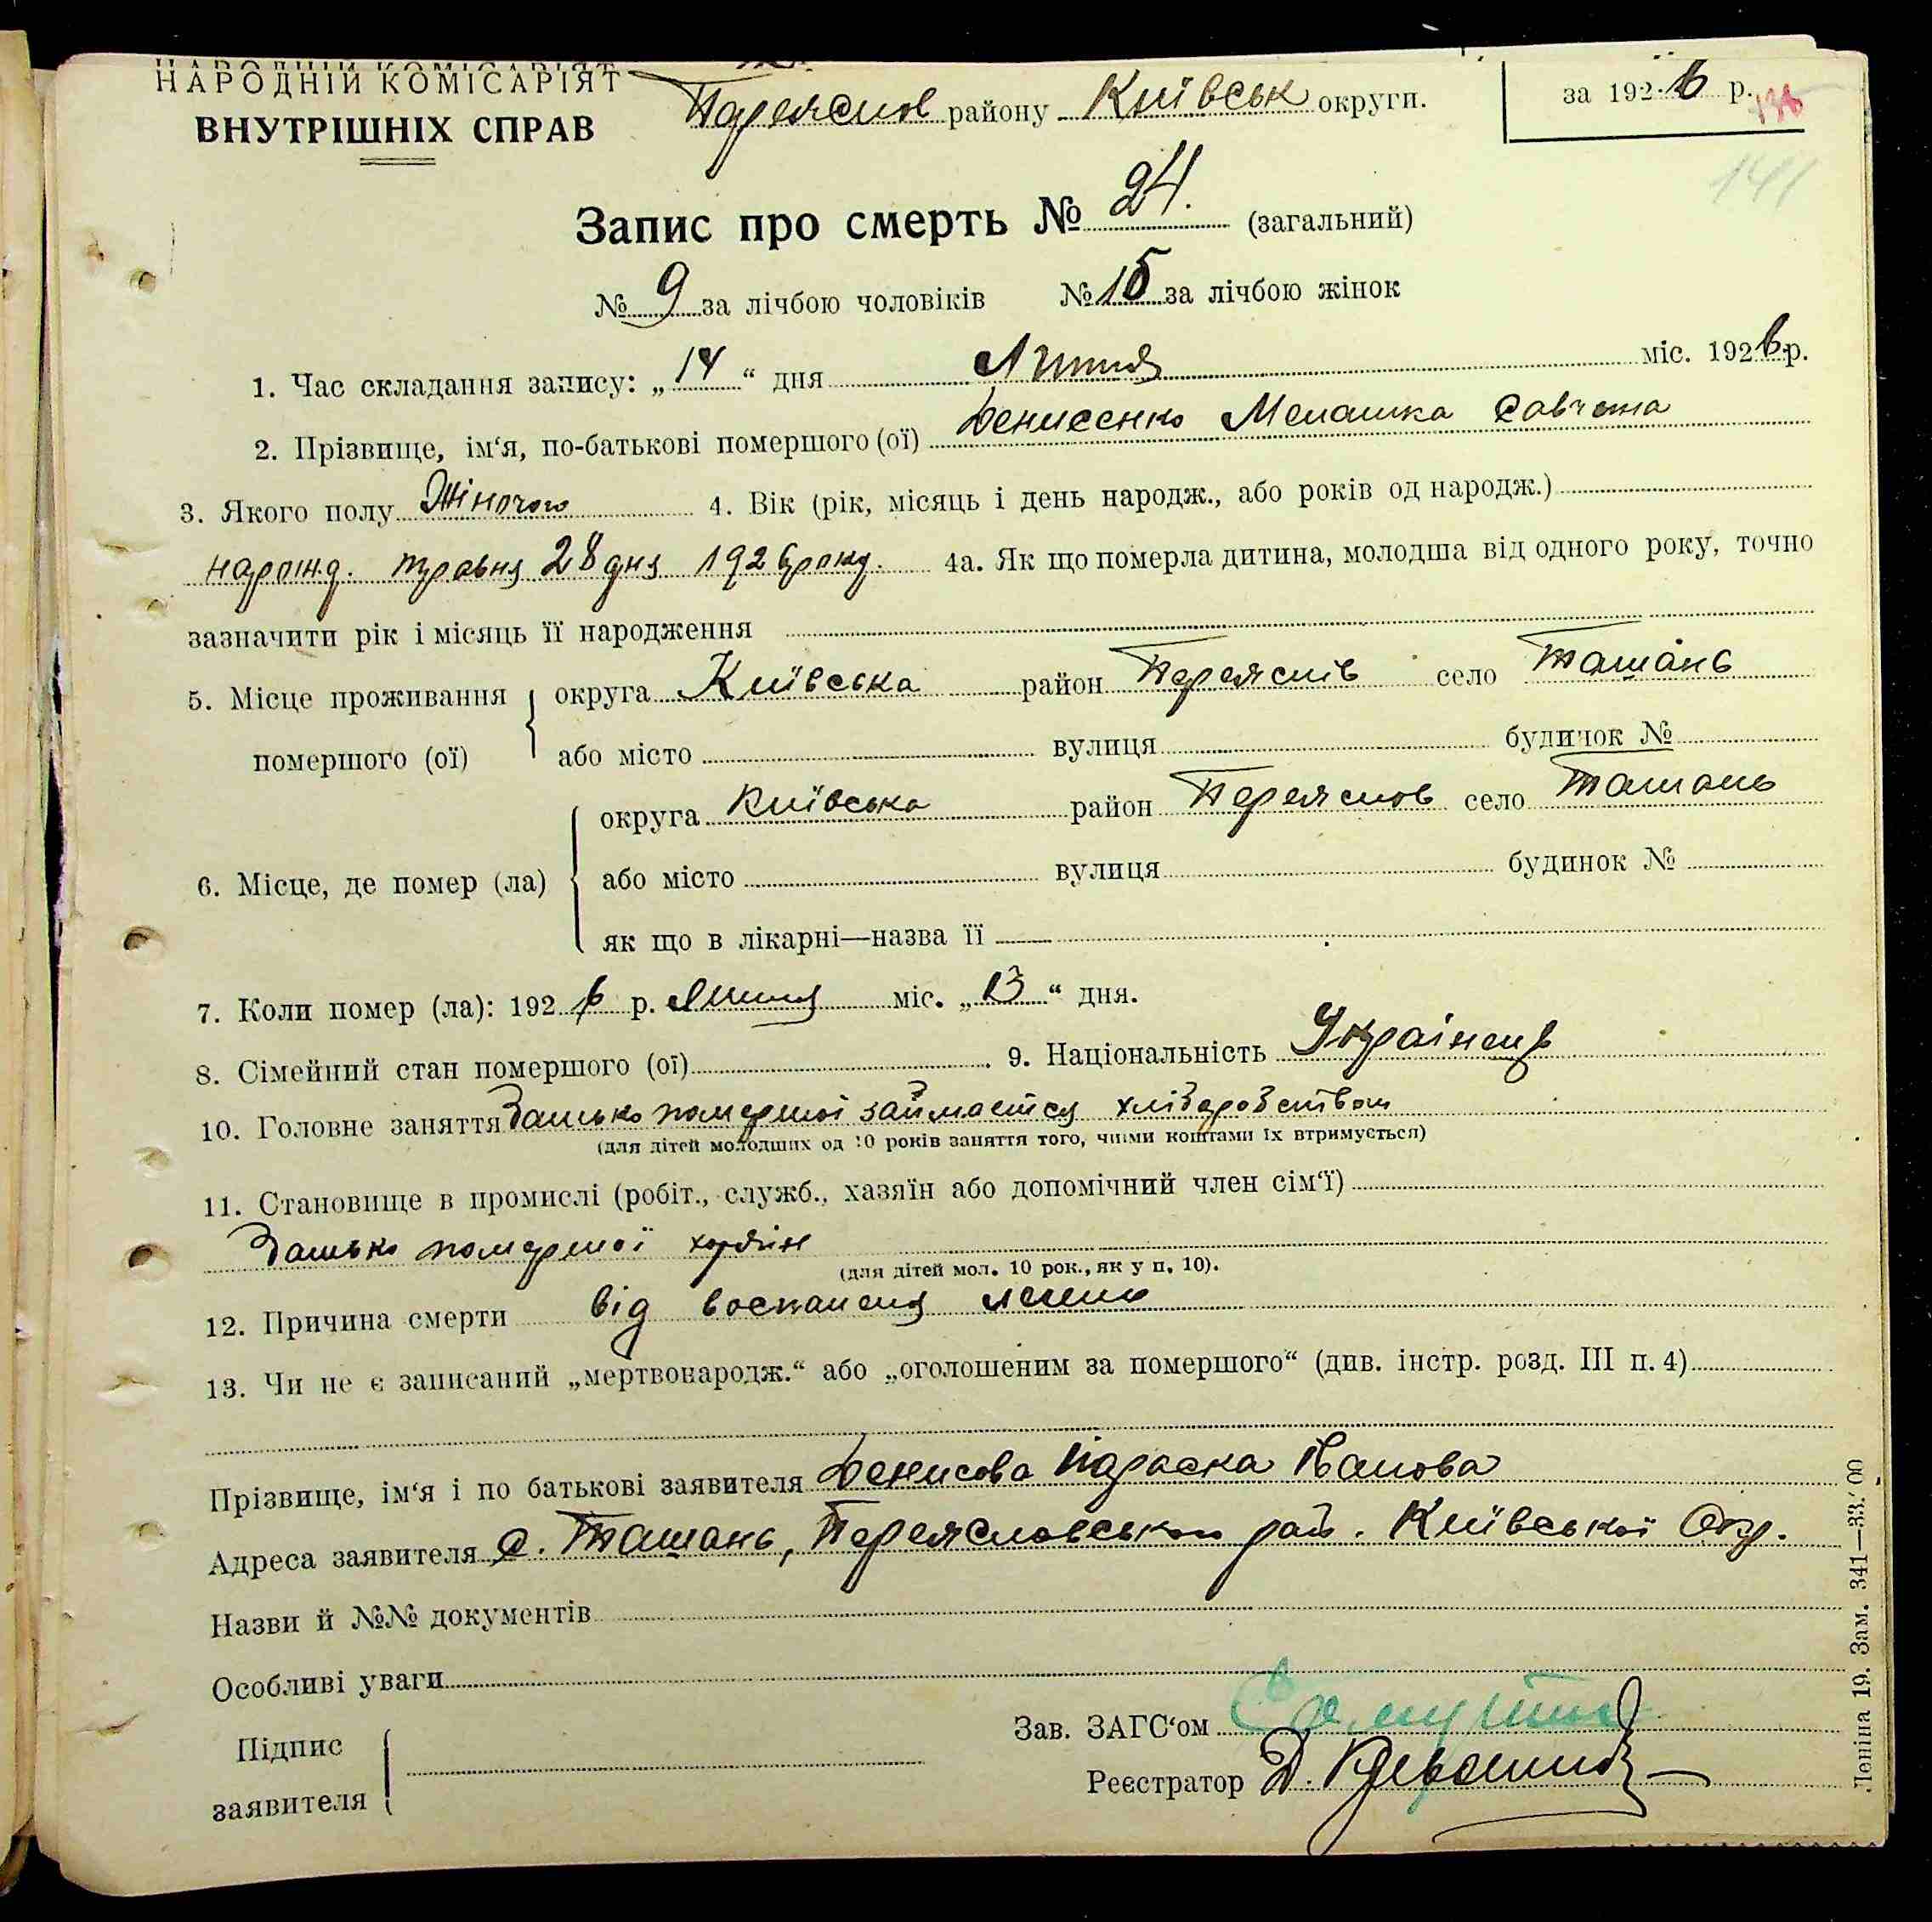 НАРОДНІЙ КОМІСАРІЯТ
ВНУТРІШНІХ СПРАВ
Переяслов району Київськ округи.
за 1926 р.
141
Запис про смерть № 24. (загальний)
№ 9 за лічбою чоловіків № 15 за лічбою жінок
1. Час складання запису: „14“ дня Липня міс. 1926 р.
2. Прізвище, ім‘я, по-батькові помершого (ої) Денисенко Мелашка Савчена
3. Якого полу Жіночого 4. Вік (рік, місяць і день народж., або років од народж.)
нарожд. травня 28 дня 1926 року. 4а. Як що померла дитина, молодша від одного року, точно
зазначити рік і місяць її народження
5. Місце проживання округа Київська район Переяслів село Ташань
помершого (ої) або місто вулиця будинок №
округа Київська район Переяслов село Ташань
6. Місце, де помер (ла) або місто вулиця будинок №
як що в лікарні—назва її —
7. Коли помер (ла): 1926 р. Липня міс. „13“ дня.
8. Сімейний стан помершого (ої) 9. Національність Українець
10. Головне заняття Батько помершої займается хліборобством
(для дітей молодших од 10 років заняття того, чиїми коштами їх втримується)
11. Становище в промислі (робіт., служб., хазяїн або допомічний член сім‘ї)
Батько помершої хозяїн
(для дітей мол. 10 рок., як у п. 10).
12. Причина смерти від воспаленя легких
13. Чи не є записаний „мертвонародж.“ або „оголошеним за помершого“ (див. інстр. розд. III п. 4)
Прізвище, ім‘я і по батькові заявителя Денисова Параска Іванова
Адреса заявителя с. Ташань, Переясловського рай. Київської Окр.
Назви й №№ документів
Особливі уваги
Підпис
заявителя
Зав. ЗАГС‘ом
Реєстратор Д.
Леніна 19. Зам. 341—33.